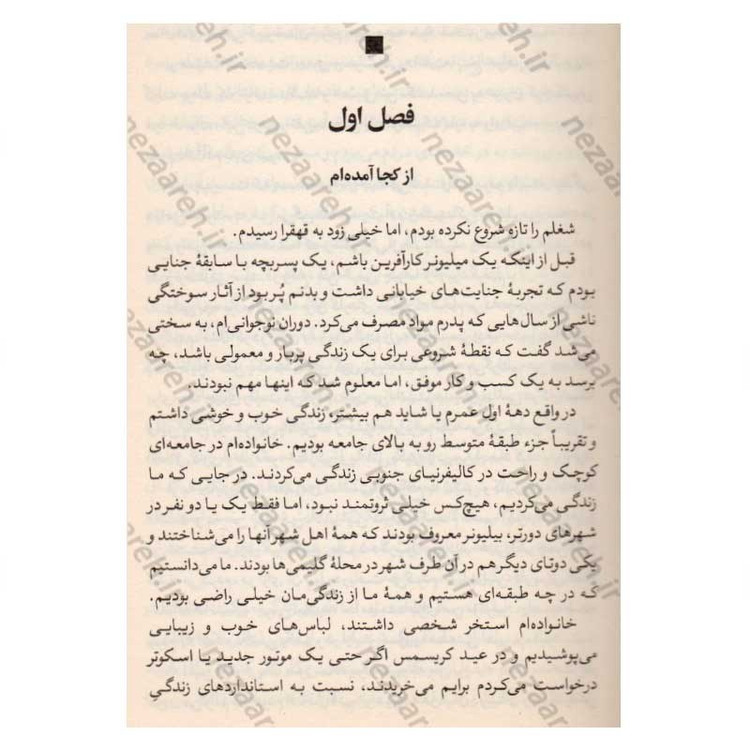 فصل اول
از کجا آمده‌ام
شغلم را تازه شروع نکرده بودم، اما خیلی زود به قهقرا رسیدم.
قبل از اینکه یک میلیونر کارآفرین باشم، یک پسربچه با سابقهٔ جنایی
بودم که تجربهٔ جنایت‌های خیابانی داشت و بدنم پُر بود از آثار سوختگی
ناشی از سال‌هایی که پدرم مواد مصرف می‌کرد. دوران نوجوانی‌ام، به سختی
می‌شد گفت که نقطهٔ شروعی برای یک زندگی پربار و معمولی باشد، چه
برسد به یک کسب و کار موفق، اما معلوم شد که اینها مهم نبودند.
در واقع دههٔ اول عمرم یا شاید هم بیشتر، زندگی خوب و خوشی داشتم
و تقریباً جزء طبقهٔ متوسط رو به بالای جامعه بودیم. خانواده‌ام در جامعه‌ای
کوچک و راحت در کالیفرنیای جنوبی زندگی می‌کردند. در جایی که ما
زندگی می‌کردیم، هیچ‌کس خیلی ثروتمند نبود، اما فقط یک یا دو نفر در
شهرهای دورتر، بیلیونر معروف بودند که همهٔ اهل شهر آنها را می‌شناختند و
یکی دوتای دیگر هم در آن طرف شهر در محلهٔ گلیمی‌ها بودند. ما می‌دانستیم
که در چه طبقه‌ای هستیم و همهٔ ما از زندگی‌مان خیلی راضی بودیم.
خانواده‌ام استخر شخصی داشتند، لباس‌های خوب و زیبایی
می‌پوشیدیم و در عید کریسمس اگر حتی یک موتور جدید یا اسکوتر
درخواست می‌کردم برایم می‌خریدند، نسبت به استانداردهای زندگیِ
nezaareh.ir